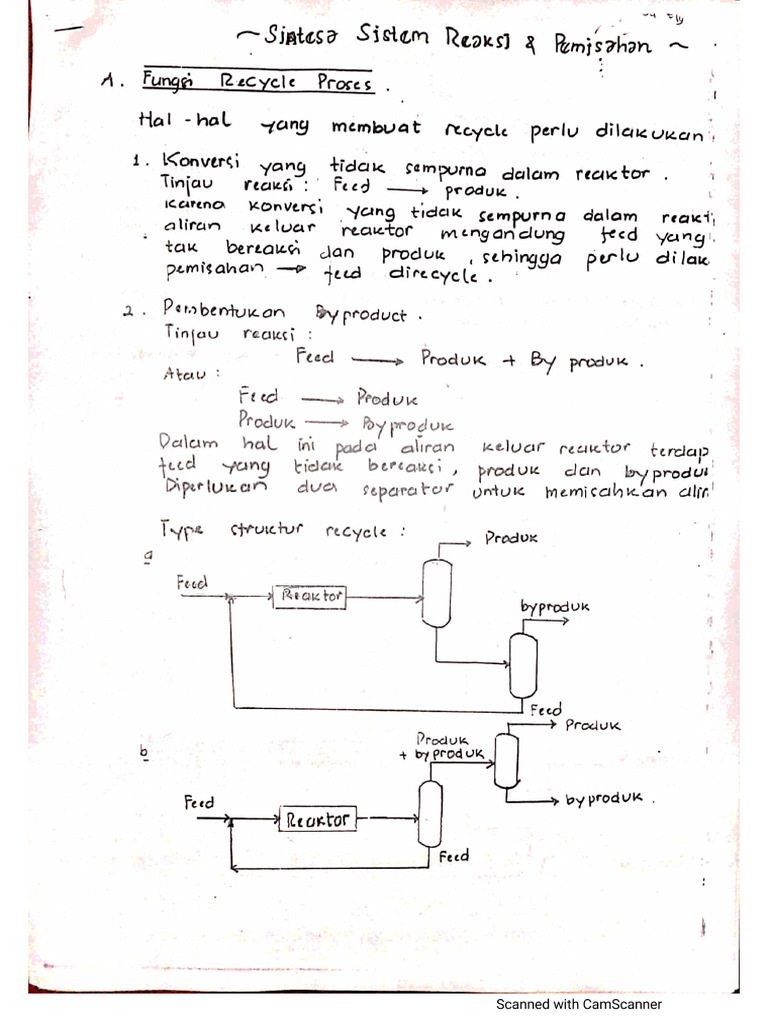 ~ Sintesa Sistem Reaksi & Pemisahan ~
A. Fungsi Recycle Proses.
Hal-hal yang membuat recycle perlu dilakukan
1. Konversi yang tidak sempurna dalam reaktor.
Tinjau reaksi: Feed → produk.
Karena konversi yang tidak sempurna dalam reakt
aliran keluar reaktor mengandung feed yang
tak bereaksi dan produk, sehingga perlu dilak
pemisahan → feed direcycle.
2. Pembentukan By product.
Tinjau reaksi:
Feed → Produk + By produk.
Atau:
Feed → Produk
Produk → Byproduk
Dalam hal ini pada aliran keluar reaktor terdap
feed yang tidak bereaksi, produk dan byprodu
Diperlukan dua separator untuk memisahkan alir
Type struktur recycle:
a
Produk
Feed
Reaktor
byproduk
Feed
b
Produk
Produk
+ byproduk
Feed
Reaktor
byproduk.
Feed
Scanned with CamScanner